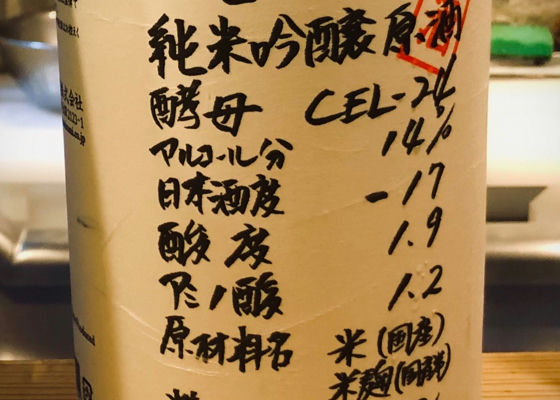 純米吟醸原酒
酵母 CEL-24
アルコール分 14%
日本酒度 -17
酸度 1.9
アミノ酸 1.2
原材料名 米(国産)
米麹(国産米)